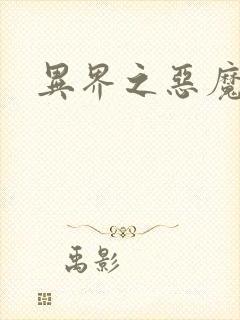 異界之惡魔
禹影